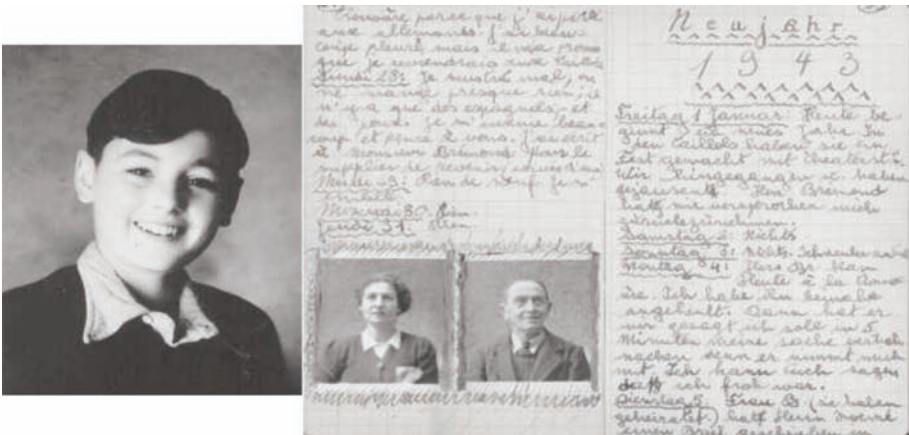 parce que j'ai parlé
aux allemands j'ai beau-
coup pleuré mais il m'a promis
que je reviendrais aux Caillols
Lundi 28: Je m'ennuie mal, on
ne mange presque rien, il
n'y a que des espagnols, et
des Je m'ennuie beau-
coup et pense à vous. J'ai écrit
à monsieur Bremond pour le
supplier de revenir
Mardi 29: Rien de neuf
Mercredi 30. Rien
Jeudi 31. Rien
Neujahr
1943
Freitag 1 Januar: Heute be-
ginnt ein neues Jahr. In
den Caillols haben sie ein
Fest gemacht mit
Wir hingegangen u. haben
Herr Bremond
hatt mir versprochen mich
zurückzunehmen.
Samstag 2: Nichts
Sonntag 3: Nichts.
Montag 4: Herr Br. kam
Heute à la
Ich habe ihn beinahe
angeheult. Dann hat er
mir gesagt ich soll in 5
Minuten meine sache fertich
machen denn er nimmt mich
mit. Ich kann euch sagen
daß ich froh war.
Dienstag 5: Frau B (sie haben
geheiratet) hatt Herrn
einen Brief geschrieben in